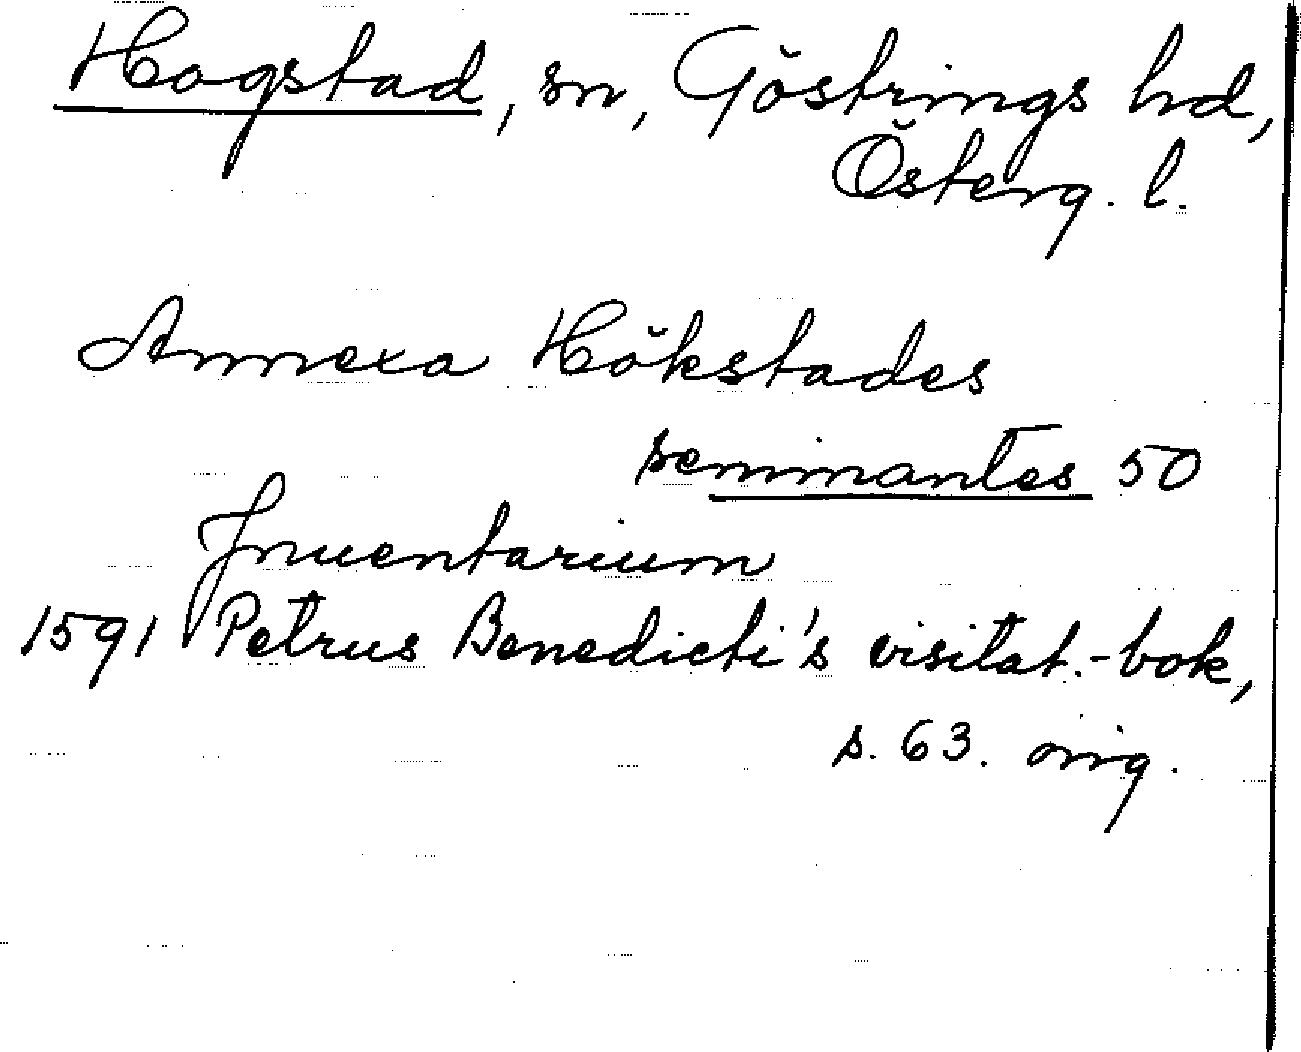 Hogstad, sn, Göstrings hd,
Österg. l.
Annexa Hökstades
seminantes 50
Inuentarium
1591 Petrus Benedicti's visitat.-bok,
s. 63. orig.